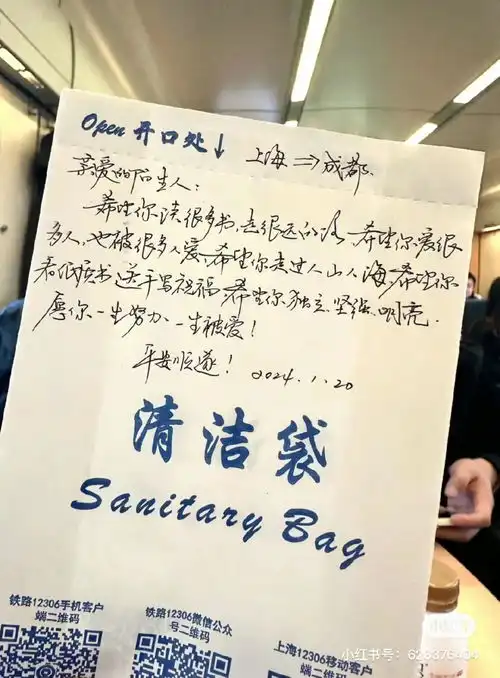 Open 开口处↓
上海⇒成都.
亲爱的陌生人:
希望你读很多书,走很远的路.希望你爱很
多人,也被很多人爱,希望你走过人山人海,希望你
送手写祝福.希望你独立、坚强、明亮.
愿你一生努力、一生被爱!
平安顺遂! 2024.1.20
清洁袋
Sanitary Bag
铁路12306手机客户
端二维码
铁路12306微信公众
号二维码
上海12306移动客户
端二维码
小红书号: